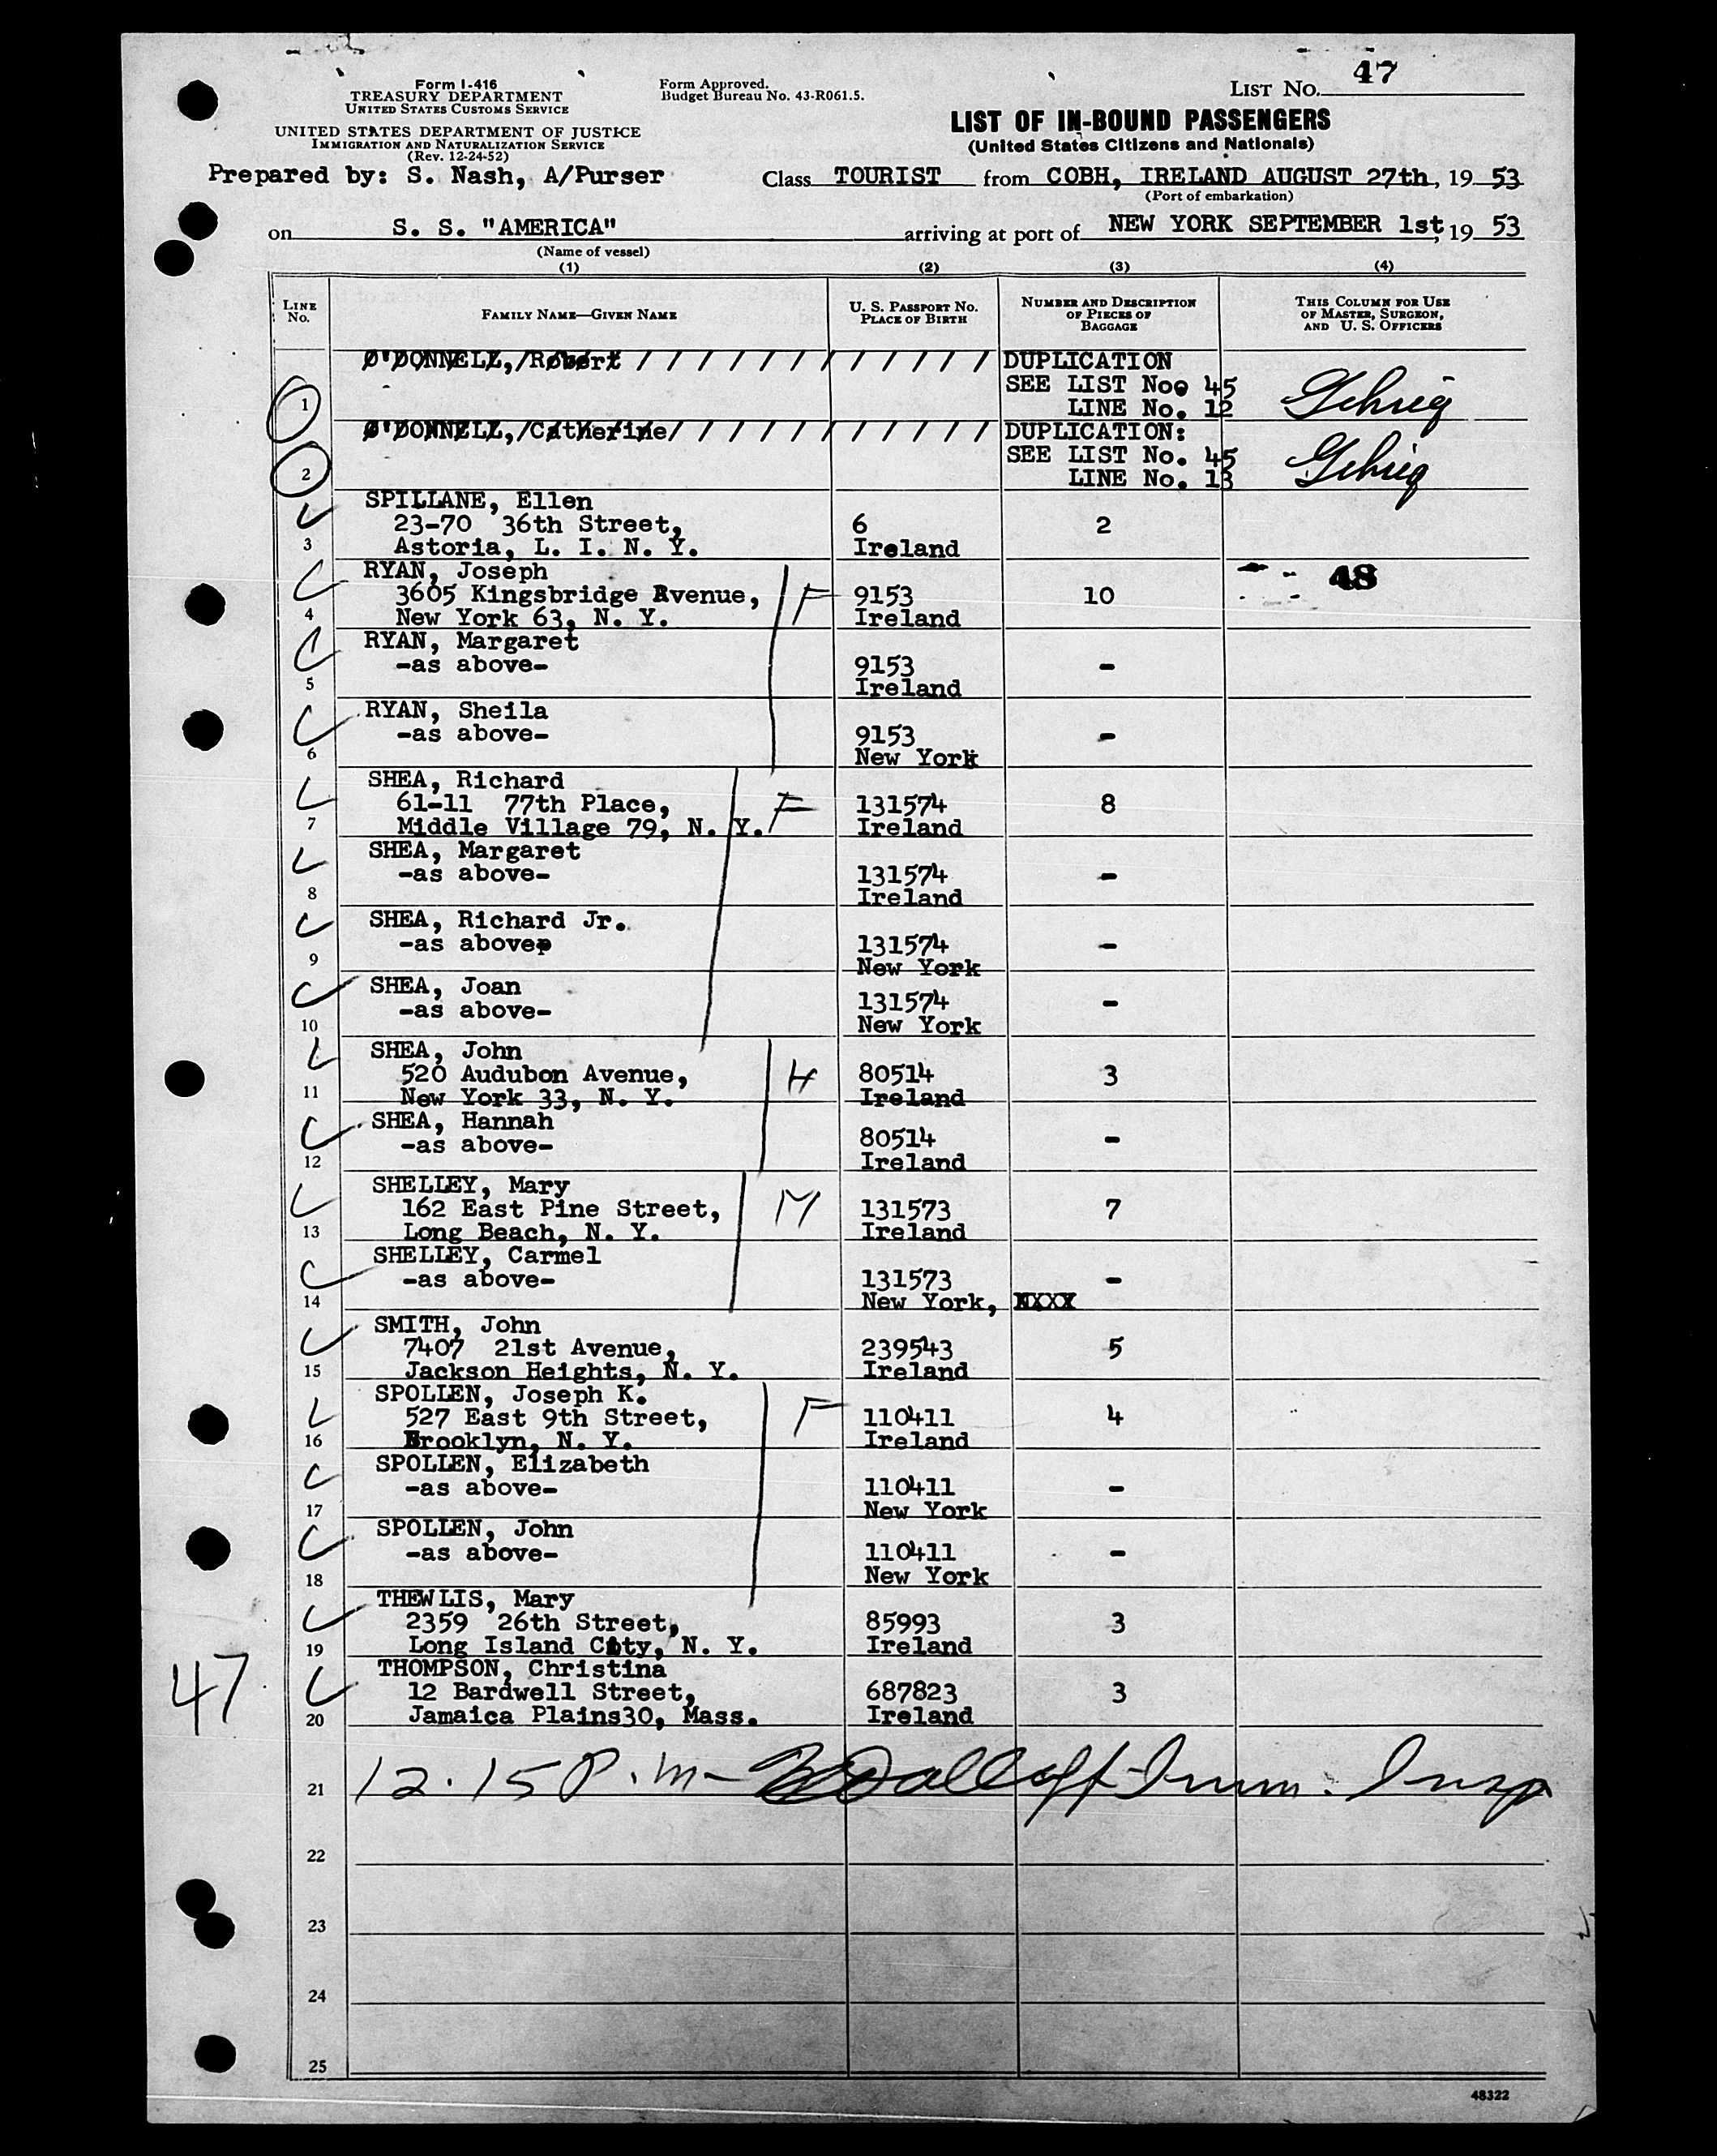 Form I-416
TREASURY DEPARTMENT
UNITED STATES CUSTOMS SERVICE
UNITED STATES DEPARTMENT OF JUSTICE
IMMIGRATION AND NATURALIZATION SERVICE
(Rev. 12-24-52)
Form Approved.
Budget Bureau No. 43-R061.5.
LIST No. 47
LIST OF IN-BOUND PASSENGERS
(United States Citizens and Nationals)
Prepared by: S. Nash, A/Purser Class TOURIST from COBH, IRELAND AUGUST 27th, 19 53
(Port of embarkation)
on S. S. "AMERICA" arriving at port of NEW YORK SEPTEMBER 1st, 19 53
(Name of vessel)
(1) (2) (3) (4)
LINE No. FAMILY NAME—GIVEN NAME U. S. PASSPORT No. PLACE OF BIRTH NUMBER AND DESCRIPTION OF PIECES OF BAGGAGE THIS COLUMN FOR USE OF MASTER, SURGEON, AND U. S. OFFICERS
O'DONNELL, Robert / / / / / / / / / / / / / / / DUPLICATION
SEE LIST No. 45
1 LINE No. 12 Gehrig
O'DONNELL, Catherine / / / / / / / / / / / / / / DUPLICATION:
SEE LIST No. 45
2 LINE No. 13 Gehrig
SPILLANE, Ellen
23-70 36th Street, 6 2
3 Astoria, L. I. N. Y. Ireland
RYAN, Joseph 48
3605 Kingsbridge Avenue, F 9153 10
4 New York 63, N. Y. Ireland
RYAN, Margaret
-as above- 9153 -
5 Ireland
RYAN, Sheila
-as above- 9153 -
6 New York
SHEA, Richard
61-11 77th Place, F 131574 8
7 Middle Village 79, N. Y. Ireland
SHEA, Margaret
-as above- 131574 -
8 Ireland
SHEA, Richard Jr.
-as above- 131574 -
9 New York
SHEA, Joan 131574
-as above- -
10 New York
SHEA, John
520 Audubon Avenue, H 80514 3
11 New York 33, N. Y. Ireland
SHEA, Hannah
-as above- 80514 -
12 Ireland
SHELLEY, Mary
162 East Pine Street, M 131573 7
13 Long Beach, N. Y. Ireland
SHELLEY, Carmel
-as above- 131573 -
14 New York, NXXX
SMITH, John
7407 21st Avenue, 239543 5
15 Jackson Heights, N. Y. Ireland
SPOLLEN, Joseph K.
527 East 9th Street, F 110411 4
16 Brooklyn, N. Y. Ireland
SPOLLEN, Elizabeth
-as above- 110411 -
17 New York
SPOLLEN, John
-as above- 110411 -
18 New York
THEWLIS, Mary
2359 26th Street, 85993 3
19 Long Island City, N. Y. Ireland
THOMPSON, Christina
47 12 Bardwell Street, 687823 3
20 Jamaica Plains30, Mass. Ireland
21 12.15 P.m- Imm. Insp
22
23
24
25
48322